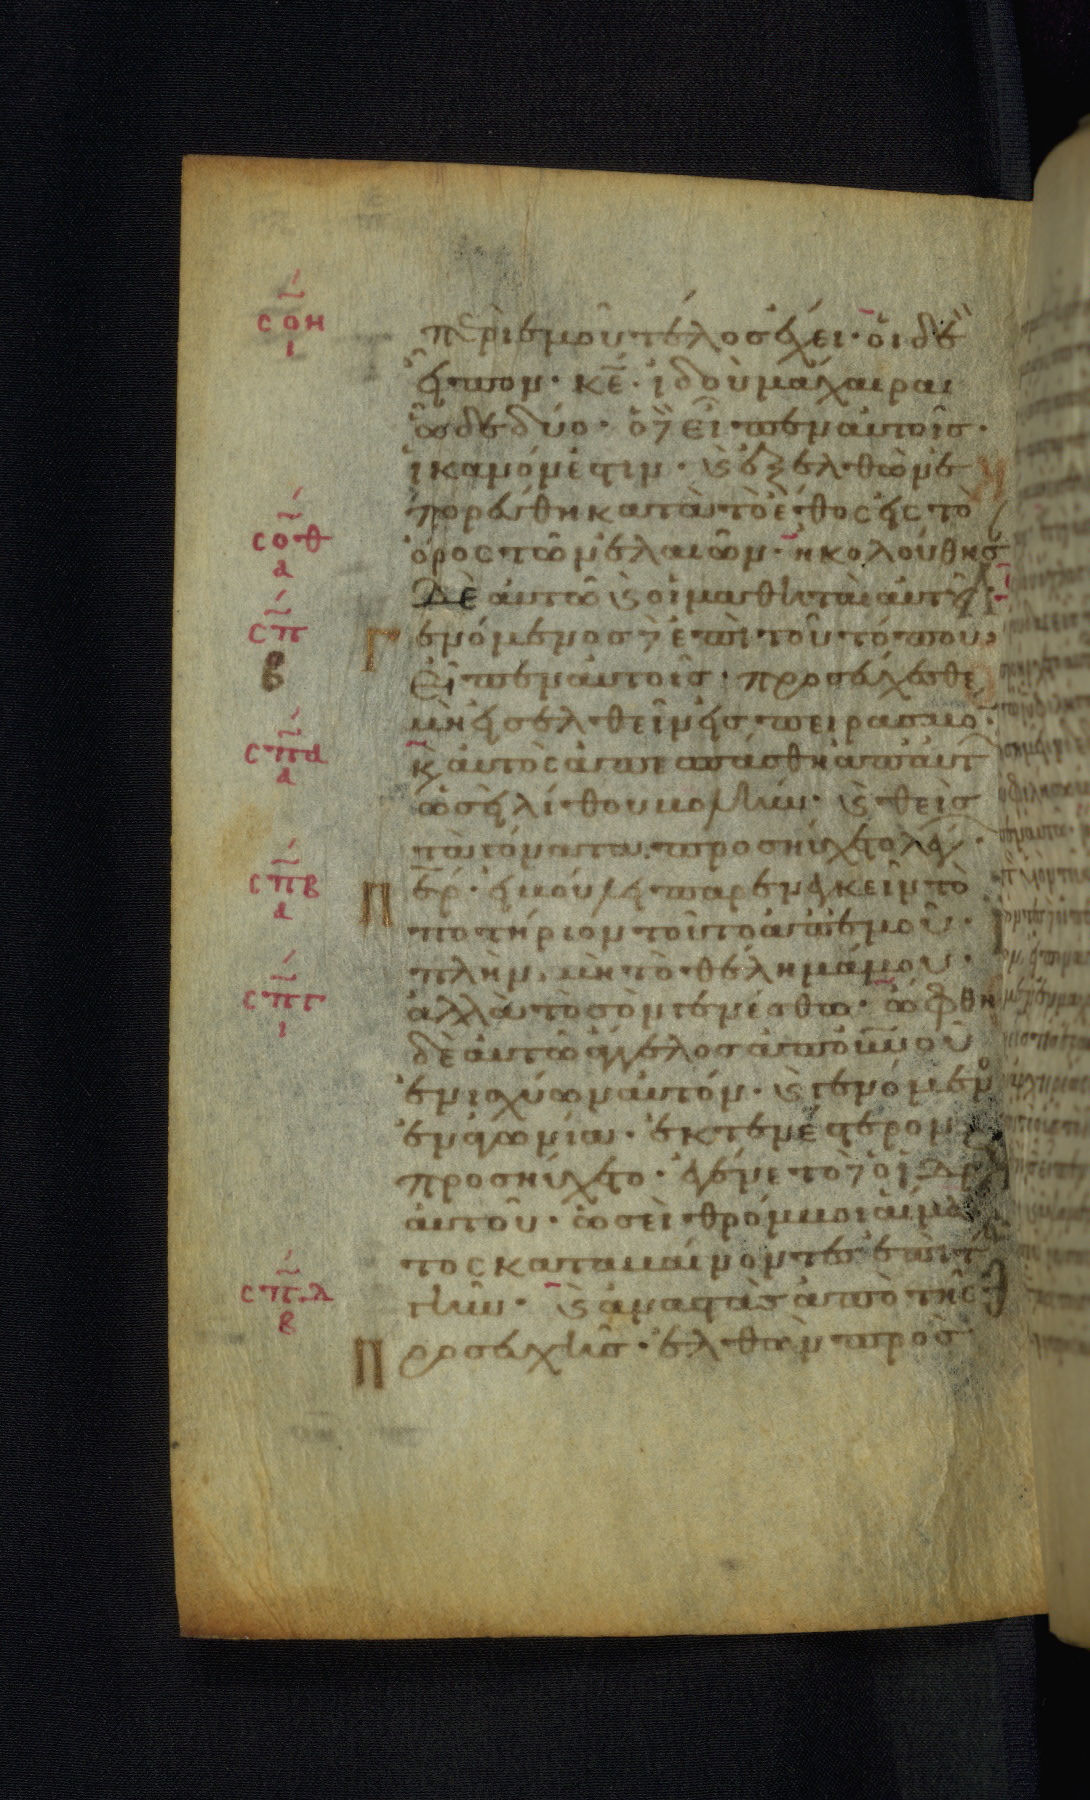 σοη
ι
περὶ ἐμοῦ τέλος ἔχει· οἱ δὲ
εἶπον· κε̅· ἰδοὺ μάχαιραι
ὧδε δύο· ὁ δὲ εἶπεν αὐτοῖς·
ἱκανόν ἐστιν· κ(αὶ) ἐξελθὼν ἐ
πορεύθη κατὰ τὸ ἔθος εἰς τὸ
σοθ
α
ὄρος τῶν ἐλαιῶν· ἠκολούθησ
δὲ αὐτῶ κ(αὶ) οἱ μαθηταὶ αὐτοῦ·
σπ
β
Γενόμενος δὲ ἐπὶ τοῦ τόπου
εἶπεν αὐτοῖς· προσεύχεσθε
μὴ εἰσελθεῖν εἰς πειρασμό·
σπα
α
κ(αὶ) αὐτὸς ἀπεσπάσθη ἀπ' αὐτ
ὡσεὶ λίθου βολήν· κ(αὶ) θεὶς
τὰ γόνατα προσηύχετο λέγ·
σπβ
α
Περ· εἰ βούλει παρενεγκεῖν τὸ
ποτήριον τοῦτο ἀπ' ἐμοῦ·
πλὴν μὴ τὸ θέλημά μου·
σπγ
ι
ἀλλὰ τὸ σὸν γενέσθω· ὤφθη
δὲ αὐτῶ ἄγγελος ἀπὸ οὐνοῦ
ἐνισχύων αὐτόν· κ(αὶ) γενόμενο
ἐν ἀγωνία· ἐκτενέστερον
προσηύχετο· ἐγένετο δὲ ὁ ἱδρὼ
αὐτοῦ· ὡσεὶ θρόμβοι αἵμα
τος καταβαίνοντες ἐπὶ τ
σπδ
β
γῆν· κ(αὶ) ἀναστὰς ἀπὸ τῆς
Προσευχῆς· ἐλθὼν πρὸς